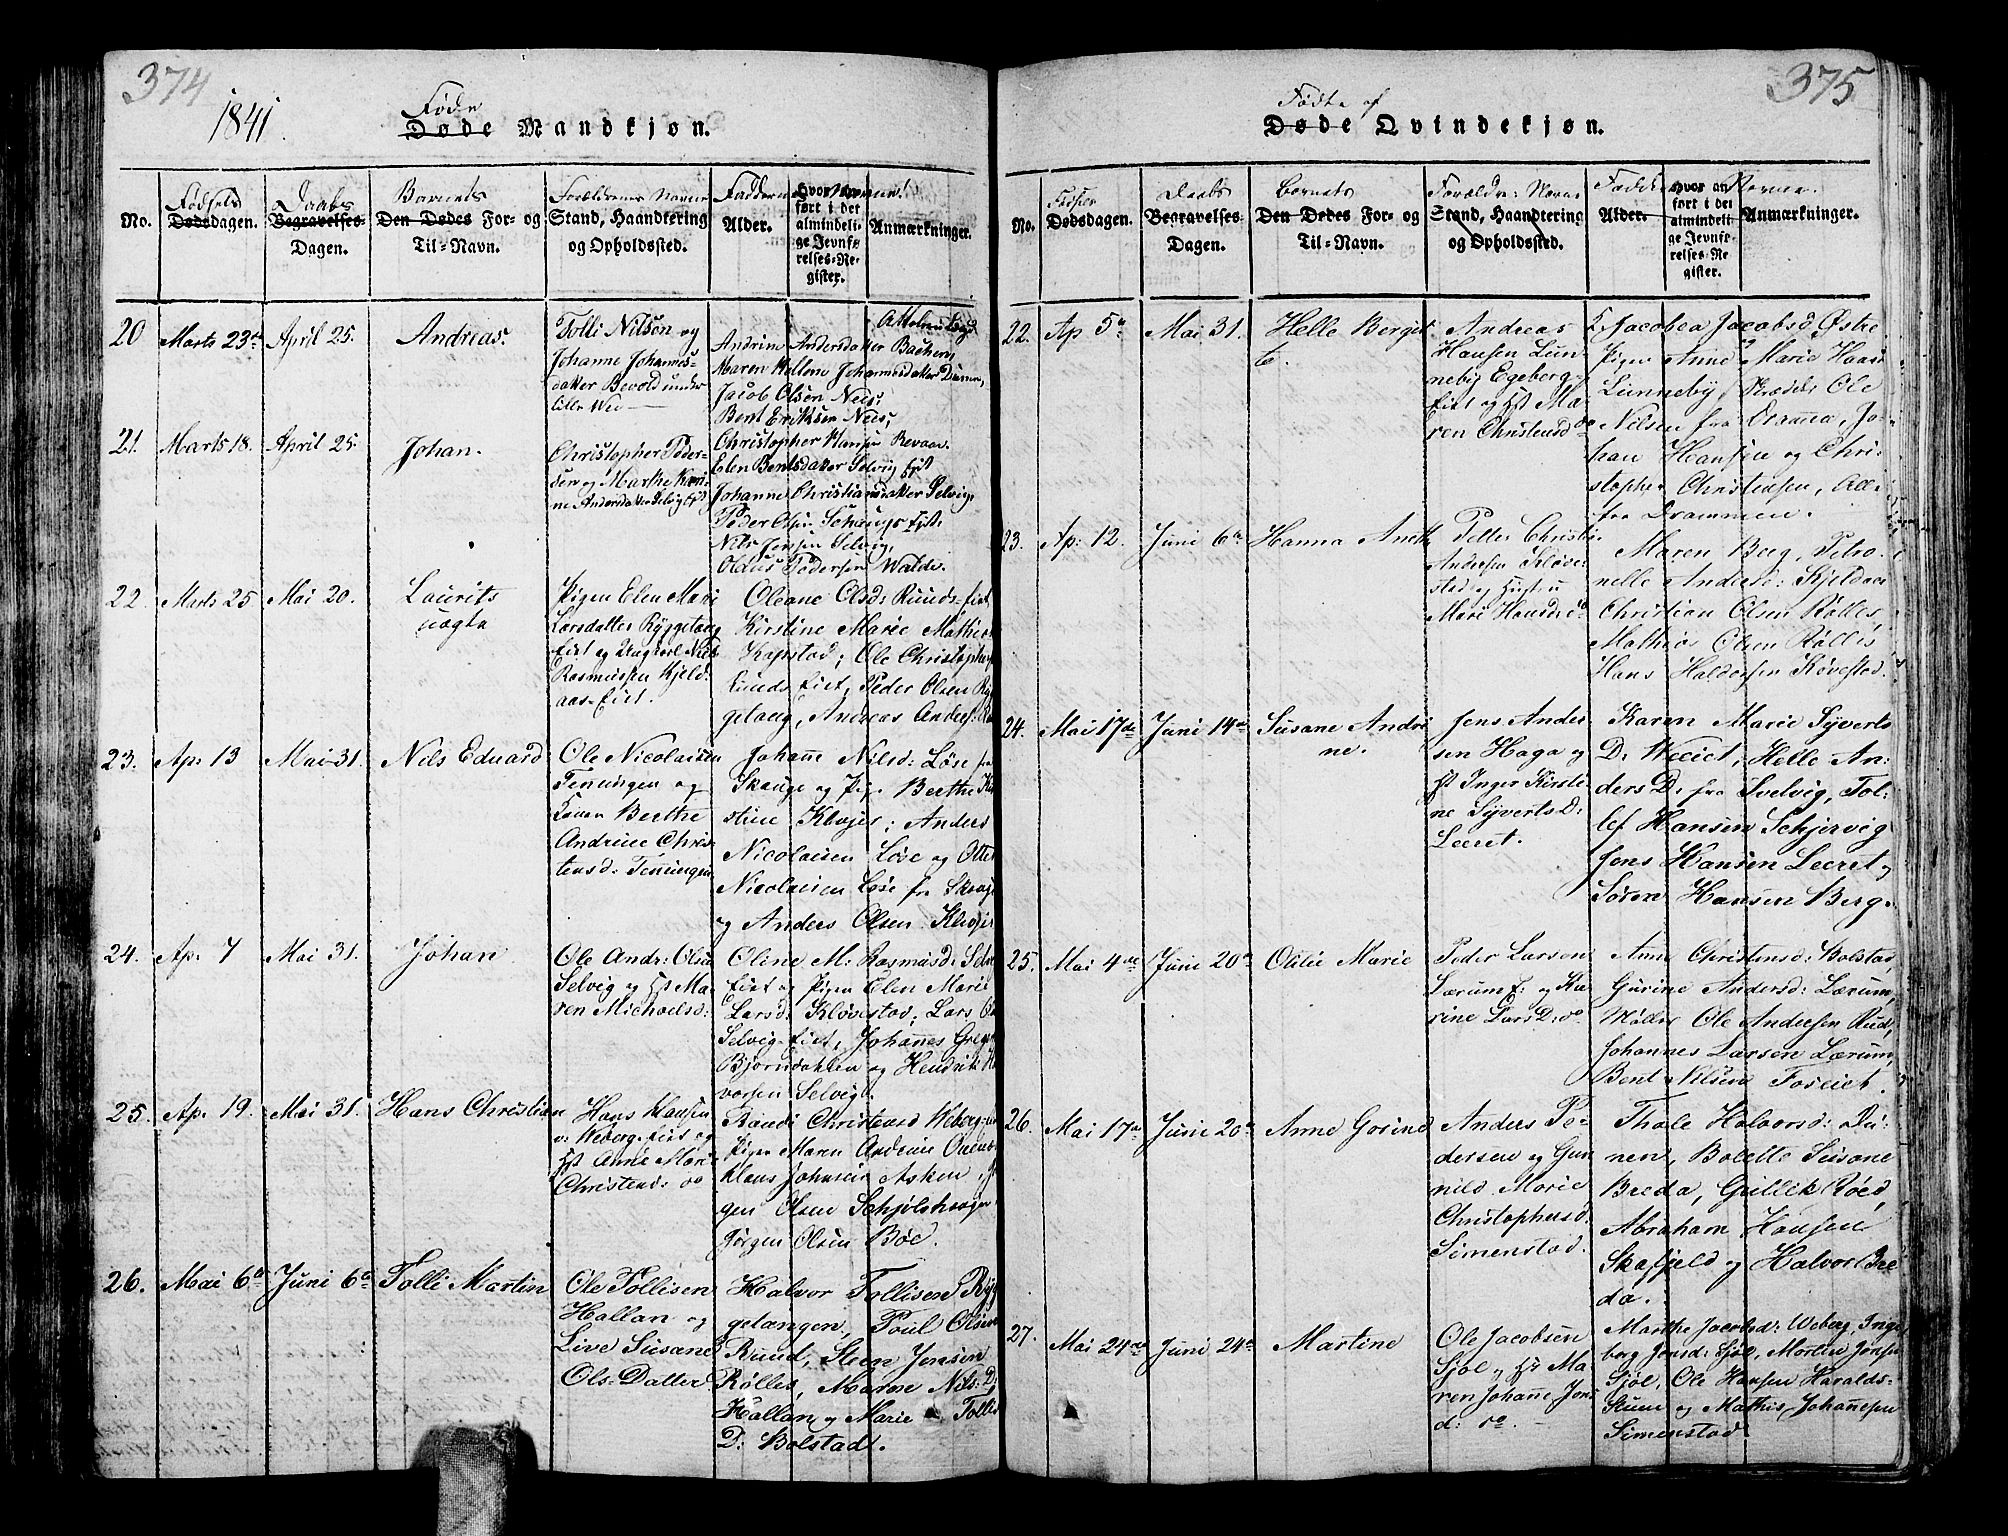 374
1841.
Føde
Døde Mandkjøn.
No.
Fødsels
Dødsdagen.
Daabs
Begravelses-
Dagen.
Barnets
Den Dødes For- og
Til-Navn.
Forældrenes Navne
Stand, Haandtering
og Opholdssted.
Faddernes Navne!
Alder.
Hvor an-
ført i det
almindeli-
ge Jevnfø-
relses-Re-
gister.
Anmærkninger.
20
Marts 23de
April 25.
Andreas.
Tolli Nilsen og
Johanne Johannes-
datter Bevold under
lille Wee
Andrine Andersdatter Bachen,
Maren Johannesdatter
Jacob Olsen Nees,
Bent Eriksen Nees,
21.
Marts 18.
April 25.
Johan.
Christopher Peder-
sen og Marthe Kari-
ne Andersdatter Selvig Ejet
Christopher Hansen Revaa
Elen Bentsdatter Selvig Ejet
Johanne Christiansdatter Selvig,
Peder Olsen Schaugs Ejet.
Nils Jensen Selvig,
Oldus Pedersen Walde.
22.
Marts 25
Mai 20.
Laurits
uægte
Pigen Elen Mari
Larsdatter Ryggetang
Eiet og Ungkarl Nils
Rasmussen Kjeld-
aas-Eiet.
Oleane Olsd: Ruuds-Eiet,
Kirstine Marie Mathias
Kapstad; Ole Christophers
Lunds Eiet, Peder Olsen Ryg-
getang, Andreas Anders:
23.
Ap: 13
Mai 31.
Nils Eduard
Ole Nicolaisen
Tenningen og
Konen Berthe
Andrine Chris-
tensd: Tenningen
Johane Nilsd: Løse fra
Skauge og Pige Berthe Kir-
stine Klvjer; Anders
Nicolaisen Løse og Otter
Nicolaisen Løse fra Skauge
og Anders Olsen Klvjer
24.
Ap: 7
Mai 31.
Johan
Ole Andr: Olsen
Selvig og Hst Ma-
ren Michaelsd:
Oline M: Rasmusd: Selv
Eiet og Pigen Elen Marie
Larsd: Kløvestad; Lars
Selvig-Eiet, Johanes Greg
Bjørndahlen og Hendrik
vorsen Selvig.
25.
Ap. 19.
Mai 31.
Hans Christian
Hans Klausen
v: Weberg-Eiet og
Hst Anne Mari
Christensd: do
Randi Christensd Weberg-
Pigen Maren Andrine
Klaus Johnsen Asken,
gen Olsen Schjølshougen
Jørgen Olsen Bøe.
26.
Mai 6te
Juni 6te
Tolli Martin
Ole Tollisen
Hallan og
Live Susane
Ols-Datter
Halvor Tollisen Ryg-
getangen, Poul Olsen
Ruud, Steen Jensen
Rølles, Maren Nils: D:
Hallan og Marie Tollis
D: Bolstad.
375
Fødte af
Døde Qvindekjøn.
No.
Fødsels
Dødsdagen.
Daabs
Begravelses-
Dagen.
Barnets
Den Dødes For- og
Til-Navn.
Forældr: Navne
Stand, Haandtering
og Opholdssted.
Faddernes Navne.
Alder.
Hvor an-
ført i det
almindeli-
ge Jevnfø-
relses-Re-
gister.
Anmærkninger.
22.
Ap 5te
Mai 31.
Helle Berget
t.
Andreas
Hansen Lun-
neby Egeberg-
Eiet og Hst Ma-
ren Christensd do
Jacobea Jacobsd, Østre
Pigen Anne Marie Haas
Lunneby, Ole
Nilsen fra Dramen, Jo-
han Hansen og Chri-
stopher Christensen, Alle
fra Drammen.
23.
Ap: 12.
Juni 6te
Hanna Aneth
Petter Christi
Andersen Kløve-
stad og Hustru
Mari Hansdr: do
Maren Berg, Petro-
nelle Andersd: Kjeldaas
Christian Olsen Rølles,
Mathias Olsen Rølles,
Hans Haldorsen Køvestad.
24.
Mai 17de
Juni 14de
Susane Andri
ne.
Jens Ander
sen Haga og
Hst Inger Kirsti-
ne Syverts D:
Leeret.
Karen Marie Syverts
D: Weeiet, Helle An-
ders D: fra Svelvig, Tol-
lef Hansen Schjervig
Jens Hansen Leeret og
Søren Hansen Berg.
25.
Mai 4de
Juni 20de
Otilie Marie
Peder Larsen
Lærum E: og Ka-
rine Lars D: do
Anne Christensd: Bolstad,
Gurine Andersd: Lærum,
Møller Ole Andersen Rud,
Johannes Larsen Lærum,
Bent Nilsen Foseiet.
26.
Mai 17de
Juni 20de
Anne Gosine
Anders Pe-
dersen og Gun
nild Marie
Christophersd:
Simenstad.
Thale Halvorsd: Du-
nen, Bolette Susane
Breda, Gullik Røed,
Abraham Hansen
Skafjeld og Halvor Bre
da.
27.
Mai 24de
Juni 24de
Martine
Ole Jacobsen
Sjøl og Hst Ma-
ren Johane Jens
d: do
Marthe Jacobsd: Weberg, Inge
berg Jensd: Sjøl, Morten Jensen
Sjøl, Ole Hansen Haralds-
Stuen og Mathis Johanesen
Simenstad